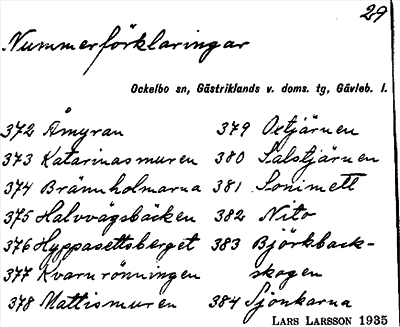 29
Nummerförklaringar
Ockelbo sn, Gästriklands v. doms. tg, Gävleb. l.
372 Åmyran
373 Katarinasmuren
374 Brännholmarna
375 Halvvägsbäcken
376 Hyppasettsberget
377 Kvarnrönningen
378 Mattismuren
379 Oxtjärnen
380 Salstjärnen
381 Sonimett
382 Nito
383 Björkback-
skogen
384 Sjönkarna
LARS LARSSON 1935